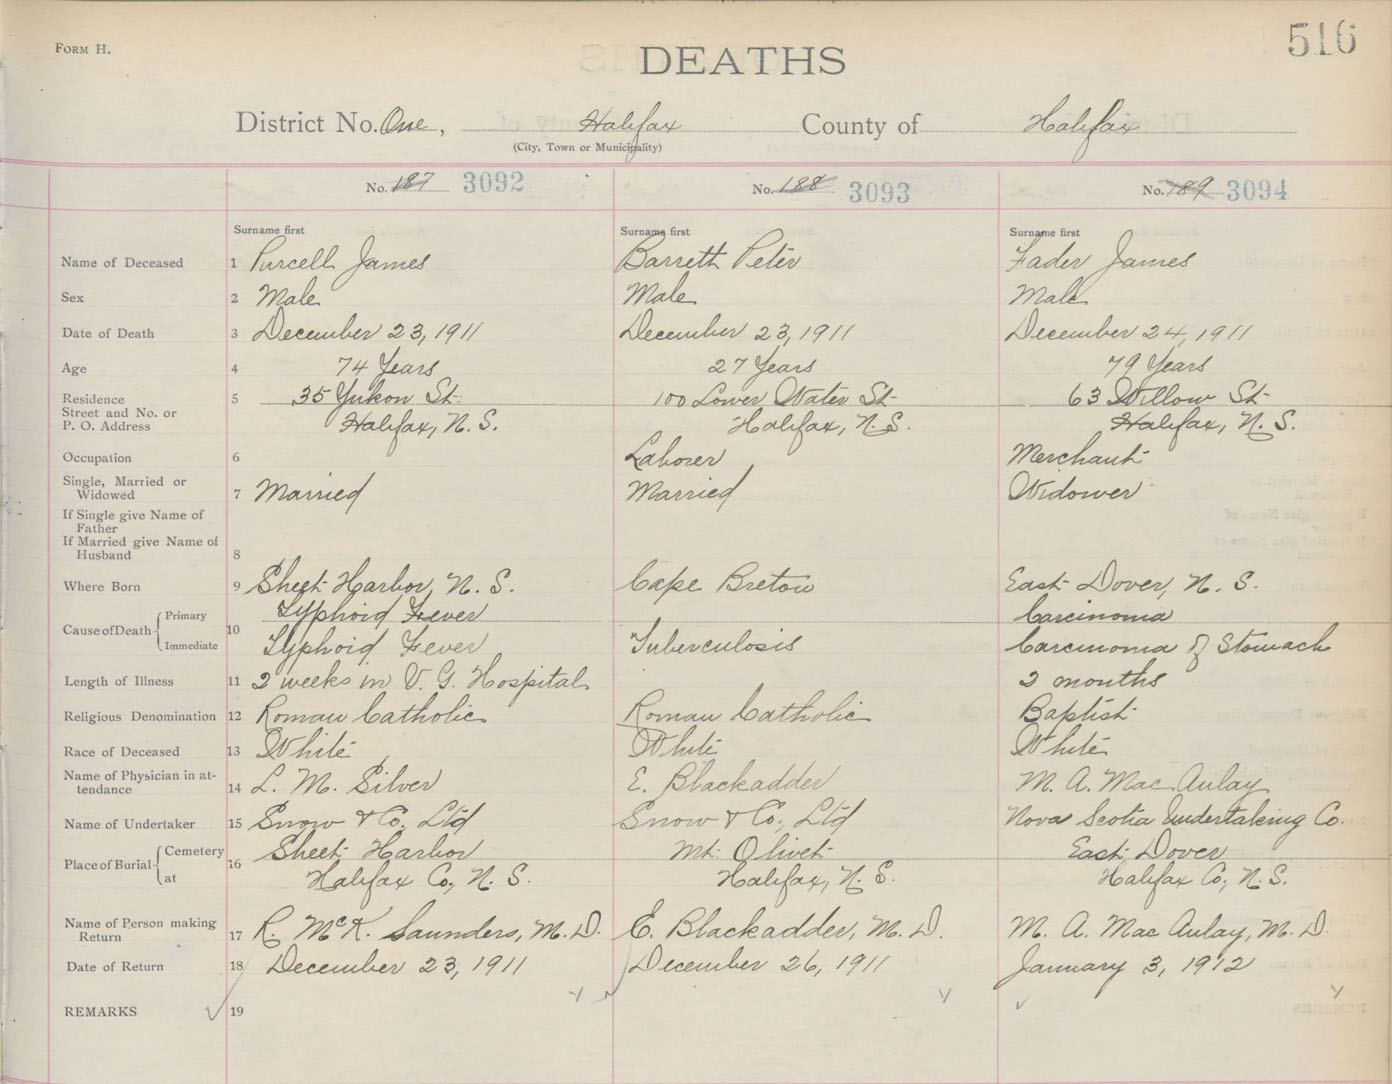 Form H.
DEATHS
516
District No. One, Halifax County of Halifax
(City, Town or Municipality)
No. 187 3092 No. 188 3093 No. 189 3094
Surname first Surname first Surname first
Name of Deceased 1 Purcell James Barrett Peter Fader James
Sex 2 Male Male Male
Date of Death 3 December 23, 1911 December 23, 1911 December 24, 1911
Age 4 74 Years 27 Years 79 Years
Residence 5 35 Yukon St. 100 Lower Water St. 63 Willow St.
Street and No. or
P. O. Address Halifax, N. S. Halifax, N. S. Halifax, N. S.
Occupation 6 Laborer Merchant
Single, Married or
Widowed 7 Married Married Widower
If Single give Name of
Father
If Married give Name of
Husband 8
Where Born 9 Sheet Harbor, N. S. Cape Breton East Dover, N. S.
Cause of Death Primary Typhoid Fever Carcinoma
10 Immediate Typhoid Fever Tuberculosis Carcinoma of Stomach
Length of Illness 11 2 weeks in V. G. Hospital 2 months
Religious Denomination 12 Roman Catholic Roman Catholic Baptist
Race of Deceased 13 White White White
Name of Physician in at-
tendance 14 L. M. Silver E. Blackadder M. A. MacAulay
Name of Undertaker 15 Snow & Co., Ltd Snow & Co., Ltd Nova Scotia Undertaking Co.
Place of Burial Cemetery Sheet Harbor Mt. Olivet East Dover
16 at Halifax Co., N. S. Halifax, N. S. Halifax Co., N. S.
Name of Person making
Return 17 R. McK. Saunders, M. D. E. Blackadder, M. D. M. A. MacAulay, M. D.
Date of Return 18 December 23, 1911 December 26, 1911 January 3, 1912
REMARKS 19